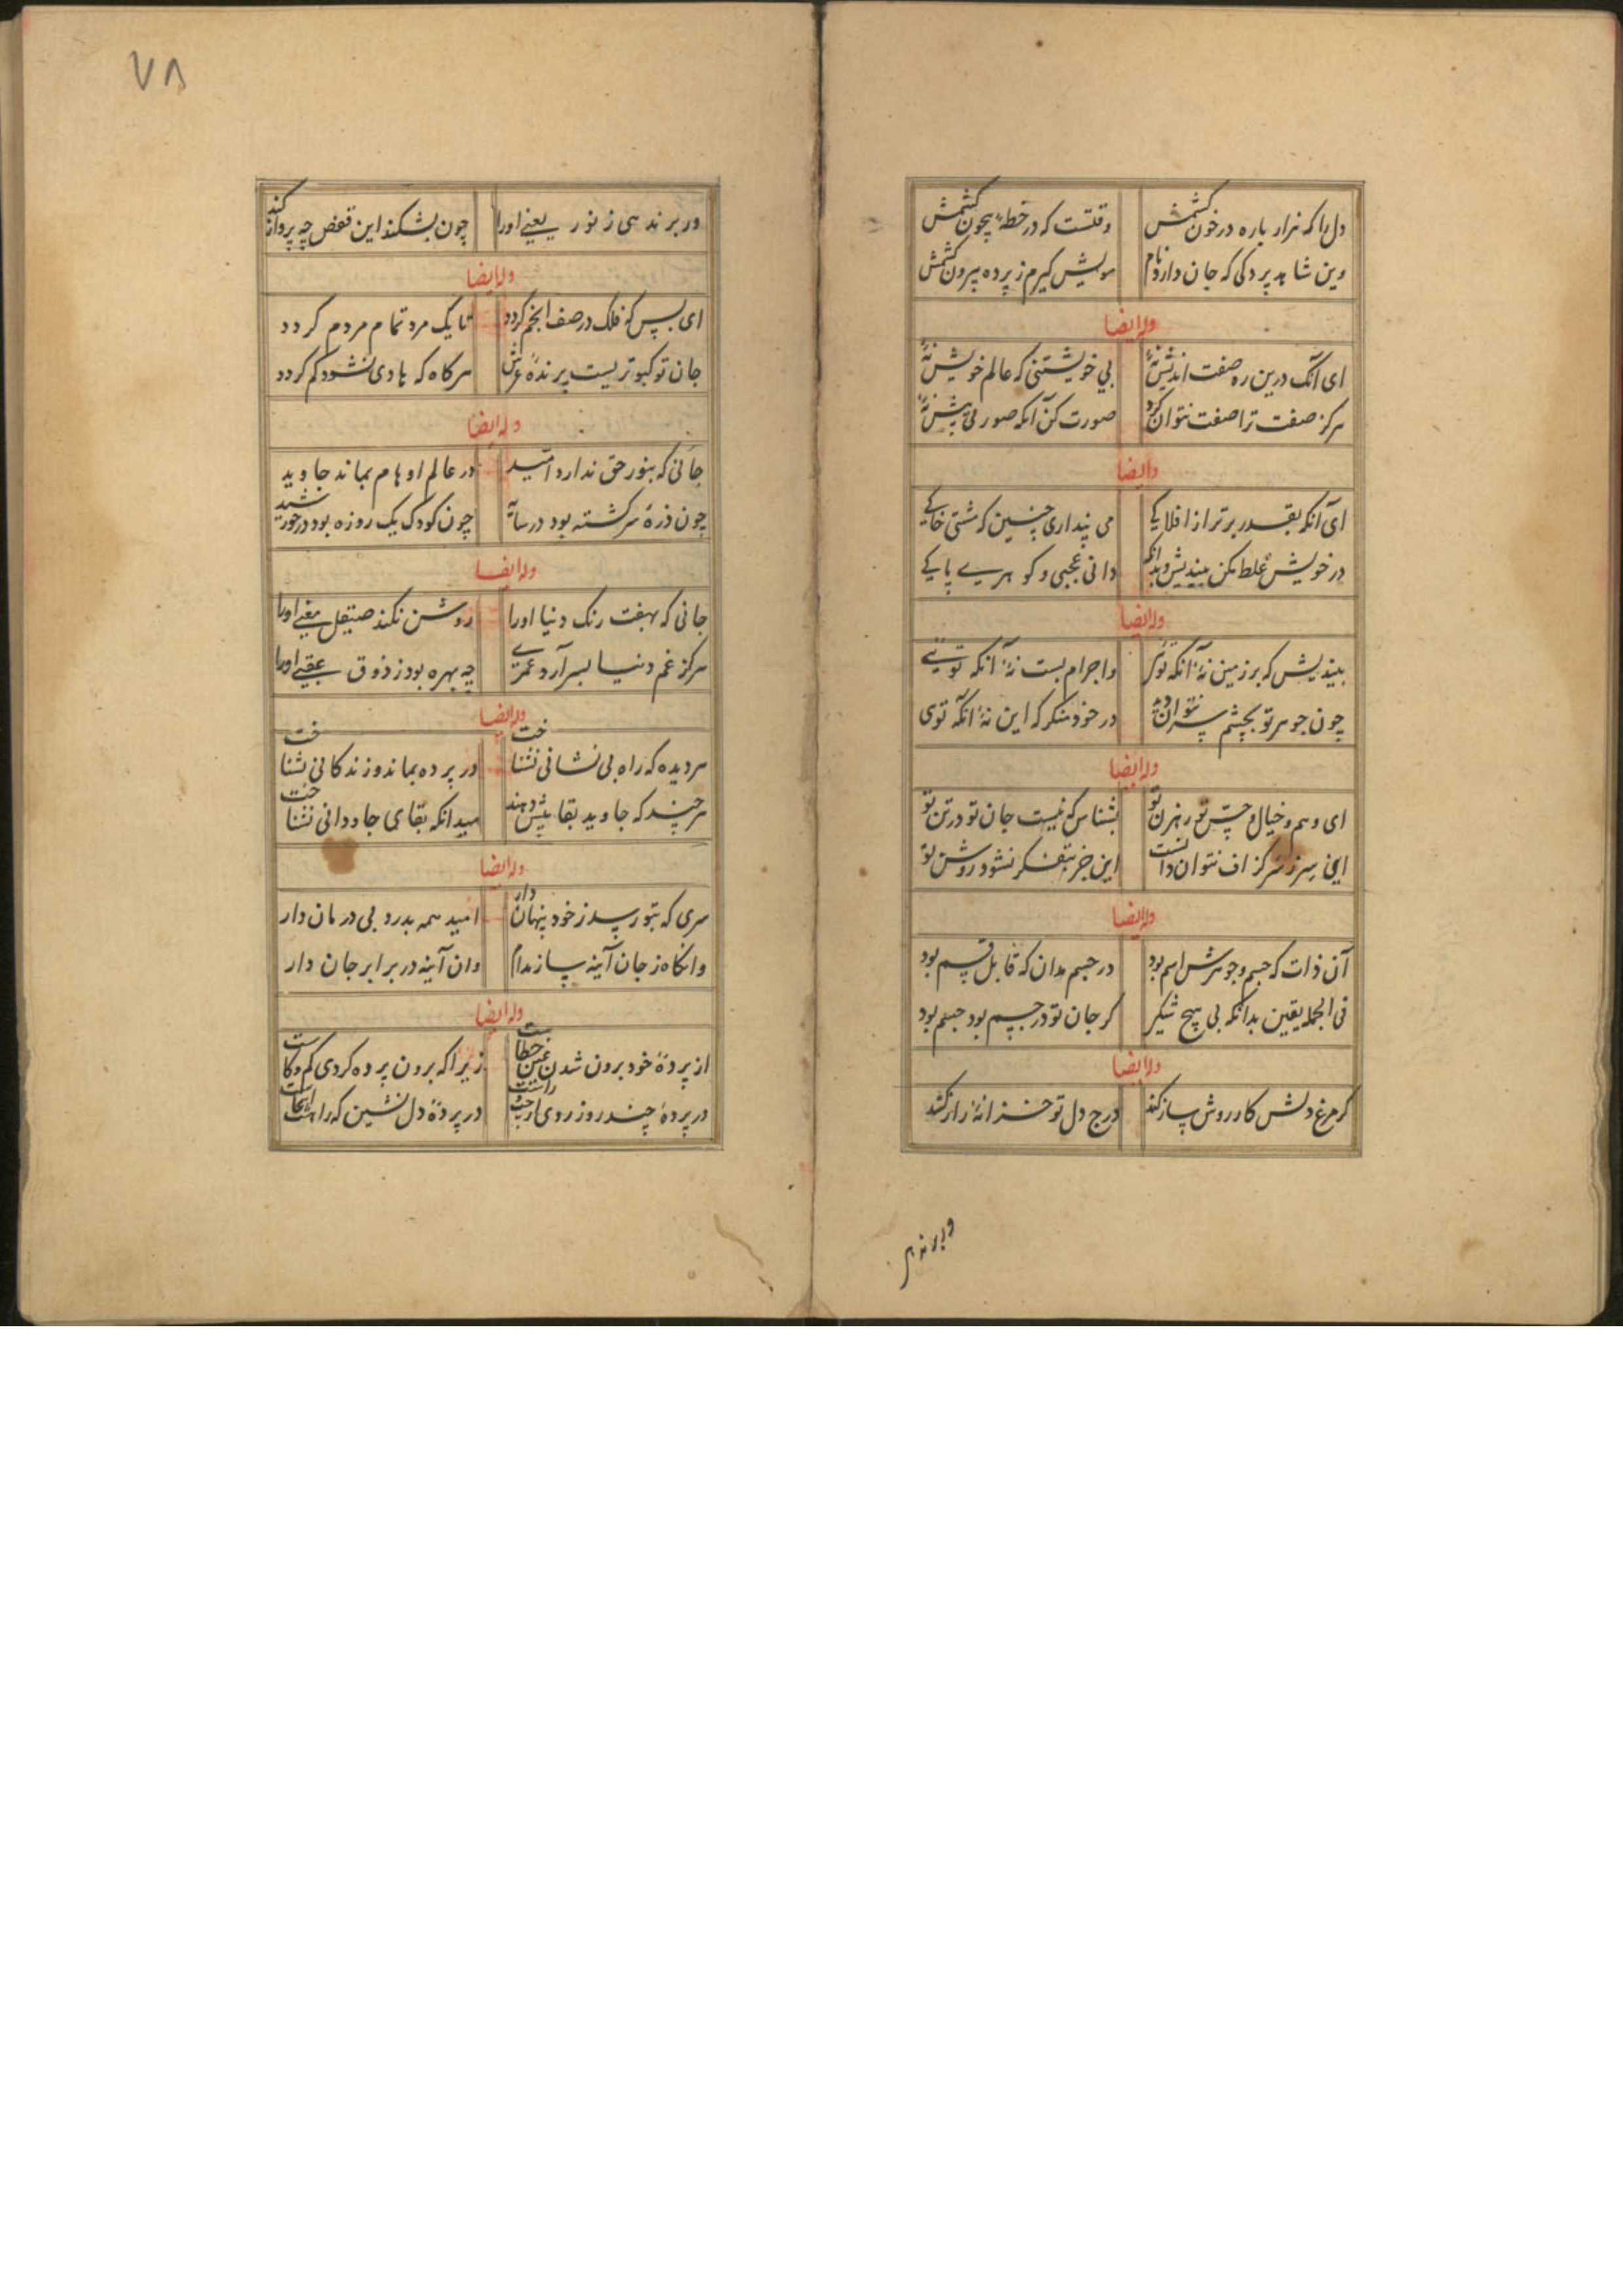 دل را که هزار باره در خون کشمش وقتست که در خطه بیچون کشمش
وین شاهد پردکی که جان دارد نام مویش کیرم ز پرده بیرون کشمش
وله ایضا
ای آنک درین ره صفت اندیش نهٔ بی خویشتنی که عالم خویش نهٔ
هرکز صفت ترا صفت نتوان کرد صورت کن آنکه صورتی بیش نهٔ
وله ایضا
ای آنکه بقدر برتر از افلاکی می پنداری چنین که مشتی خاکی
در خویش غلط مکن بیندیش و بدانکه دانی عجبی و کوهری پاکی
وله ایضا
بیندیش که بر زمین نهٔ آنکه توی واجرام بست نهٔ آنکه تویی
چون جوهر تو بچشم سر نتوان دید در خود منکر که این نهٔ آنکه توی
وله ایضا
ای وهم و خیال و حس تو رهزن تو بشناس که نیست جان تو در تن تو
این سر ز سر کزاف نتوان دانست این جز بتفکر نشود روشن تو
وله ایضا
آن ذات که جسم و جوهرش اسم بود در جسم مدان که قابل قسم بود
فی الجمله یقین بدانکه بی هیچ شکی کر جان تو در جسم بود جسم بود
وله ایضا
کر مرغ دلش کار روش ساز کند درج دل تو خزانهٔ راز کند
ور برندهی ز نور یعنی اورا چون بشکند این قفص چه پرواز کند
وله ایضا
ای بس که فلک در صف انجم کردد تا یک مرد تمام مردم کردد
جان تو کبوتریست پرندهٔ عرش هرکاه که هادی نشود کم کردد
وله ایضا
جانی که بنور حق ندارد امید در عالم اوهام بماند جاوید
چون ذرهٔ سرکشته بود در سایه چون کودک یک روزه بود در خورشید
وله ایضا
جانی که بهفت رنک دنیا اورا روشن نکند صیقل معنی اورا
هرکز غم دنیا بسر آرد عمری چه بهره بود ز ذوق عقبی اورا
وله ایضا
هر دیده که راه بی نشانی نشناخت در پرده بماند و زندکانی نشناخت
هرچند که جاوید بقا پیش دهند میدانکه بقای جاودانی نشناخت
وله ایضا
سری که بتو رسد ز خود پنهان دار امید همه بدرد بی درمان دار
وانکاه ز جان آینه ساز مدام وان آینه در برابر جان دار
وله ایضا
از پردهٔ خود برون شدن عین خطاست زیرا که برون پرده کردی کم و کاست
در پردهٔ چند روز روی از چپ و راست در پردهٔ دل نشین که راهت آنجاست
۷۸